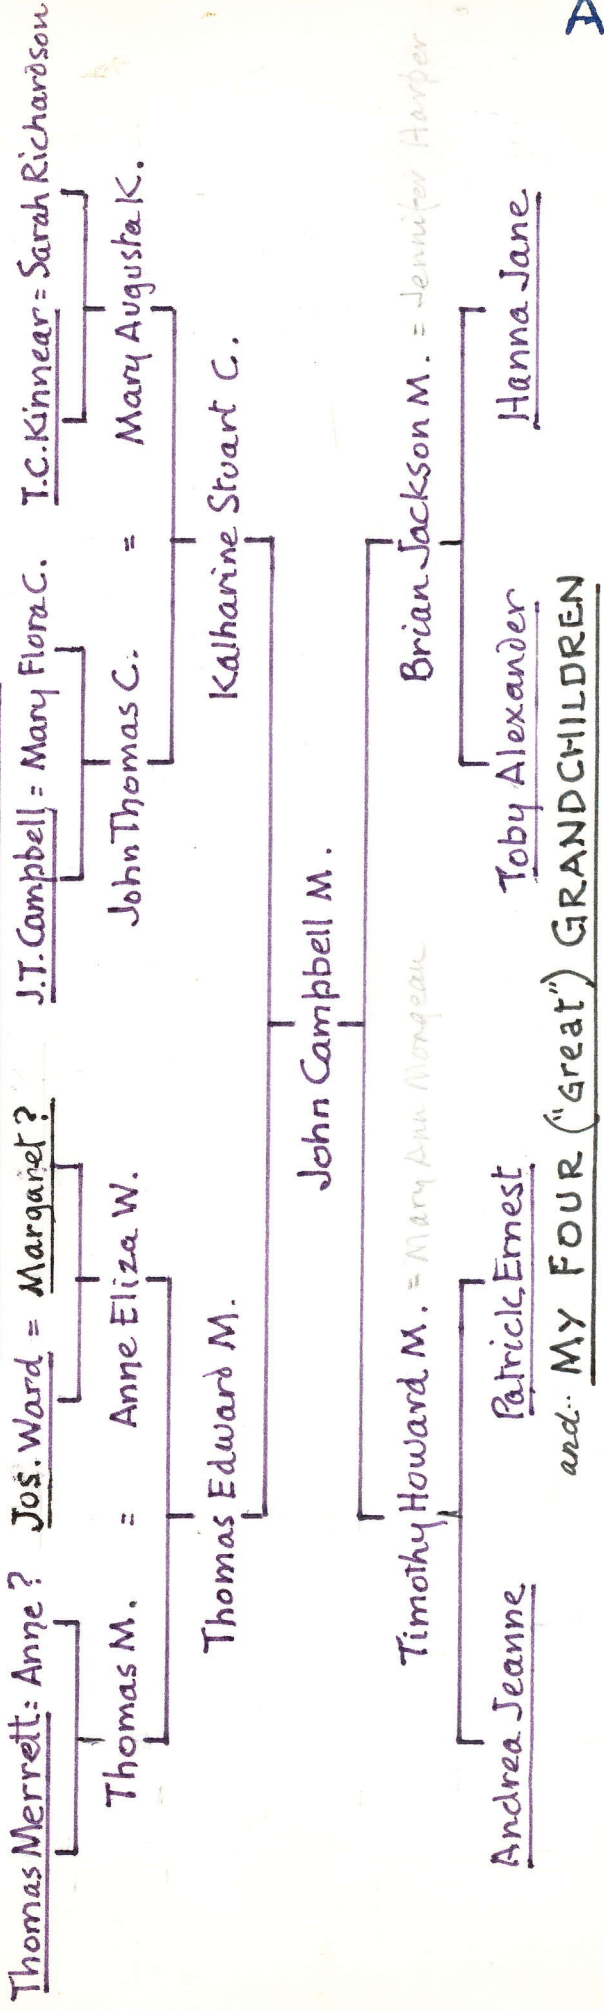 Thomas Merrett = Anne? Jos. Ward = Margaret? J.T. Campbell = Mary Flora C. T.C. Kinnear = Sarah Richardson
Thomas M. = Anne Eliza W. John Thomas C. = Mary Augusta K.
Thomas Edward M. Katharine Stuart C.
John Campbell M.
Timothy Howard M. = Mary Ann Mongeau Brian Jackson M. = Jennifer Harper
Andrea Jeanne Patrick Ernest Toby Alexander Hanna Jane
and.. MY FOUR ("Great") GRANDCHILDREN
A